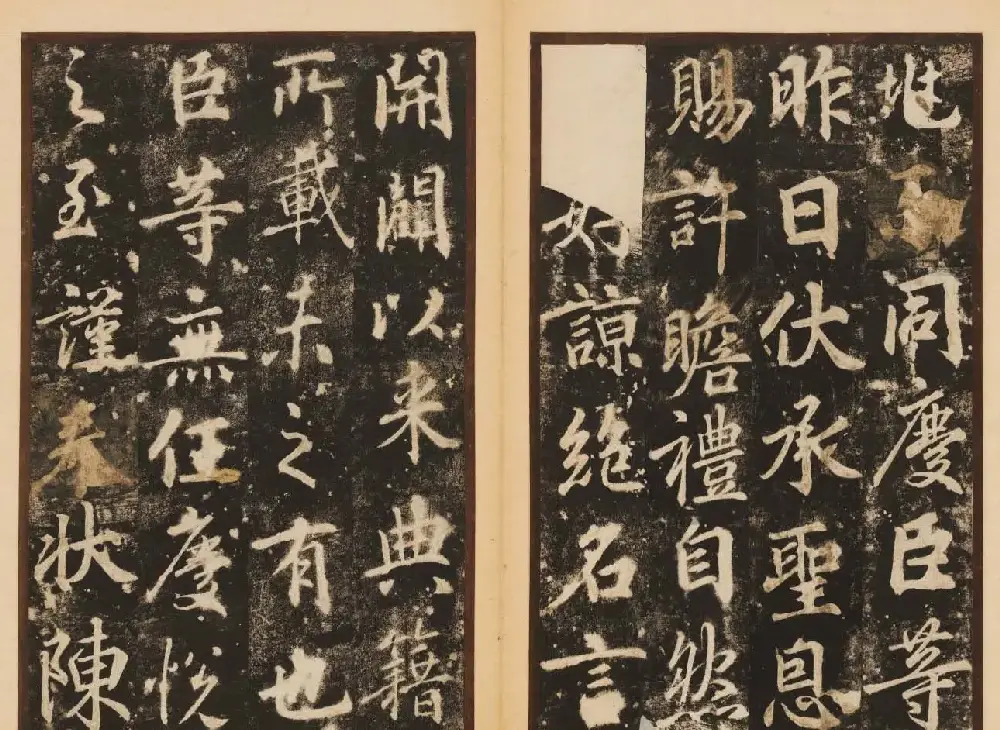 地同慶臣等
昨日伏承聖恩
賜許瞻禮自然
如諒絕名言
開闢以来典籍
所載未之有也
臣等無任慶悅
之至謹奉狀陳